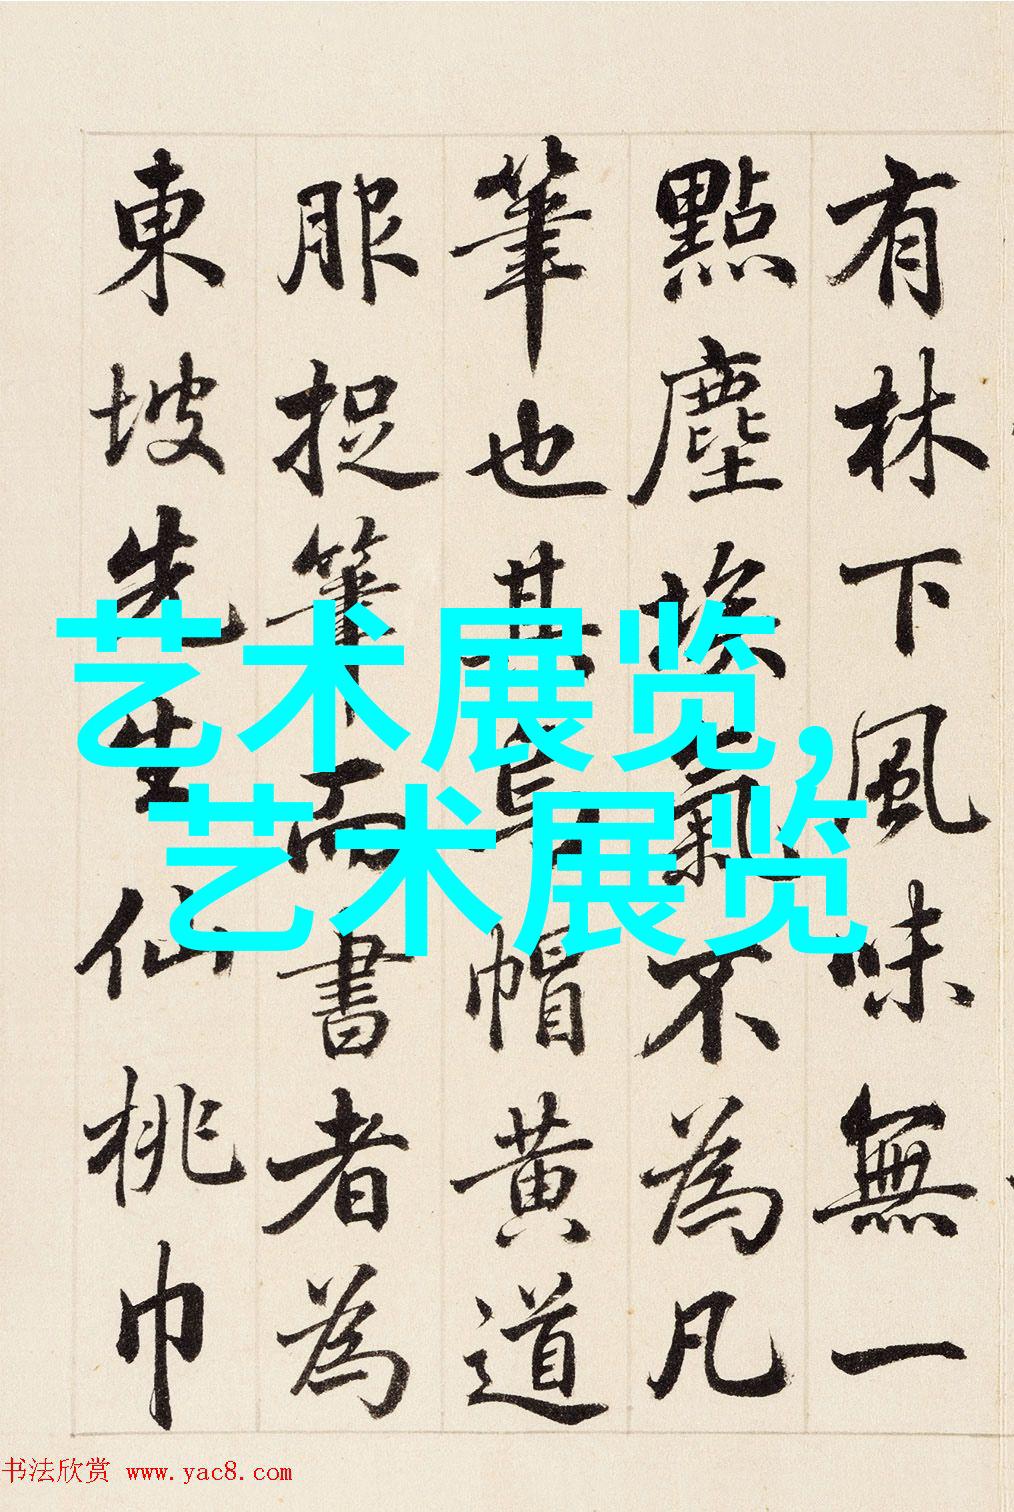 有林下風味無一
點塵埃氣不為凡
筆也其烏帽黃道
服捉筆而書者為
東坡先生仙桃巾
艺术展览，
艺术展览
书法欣赏 www.yac8.com